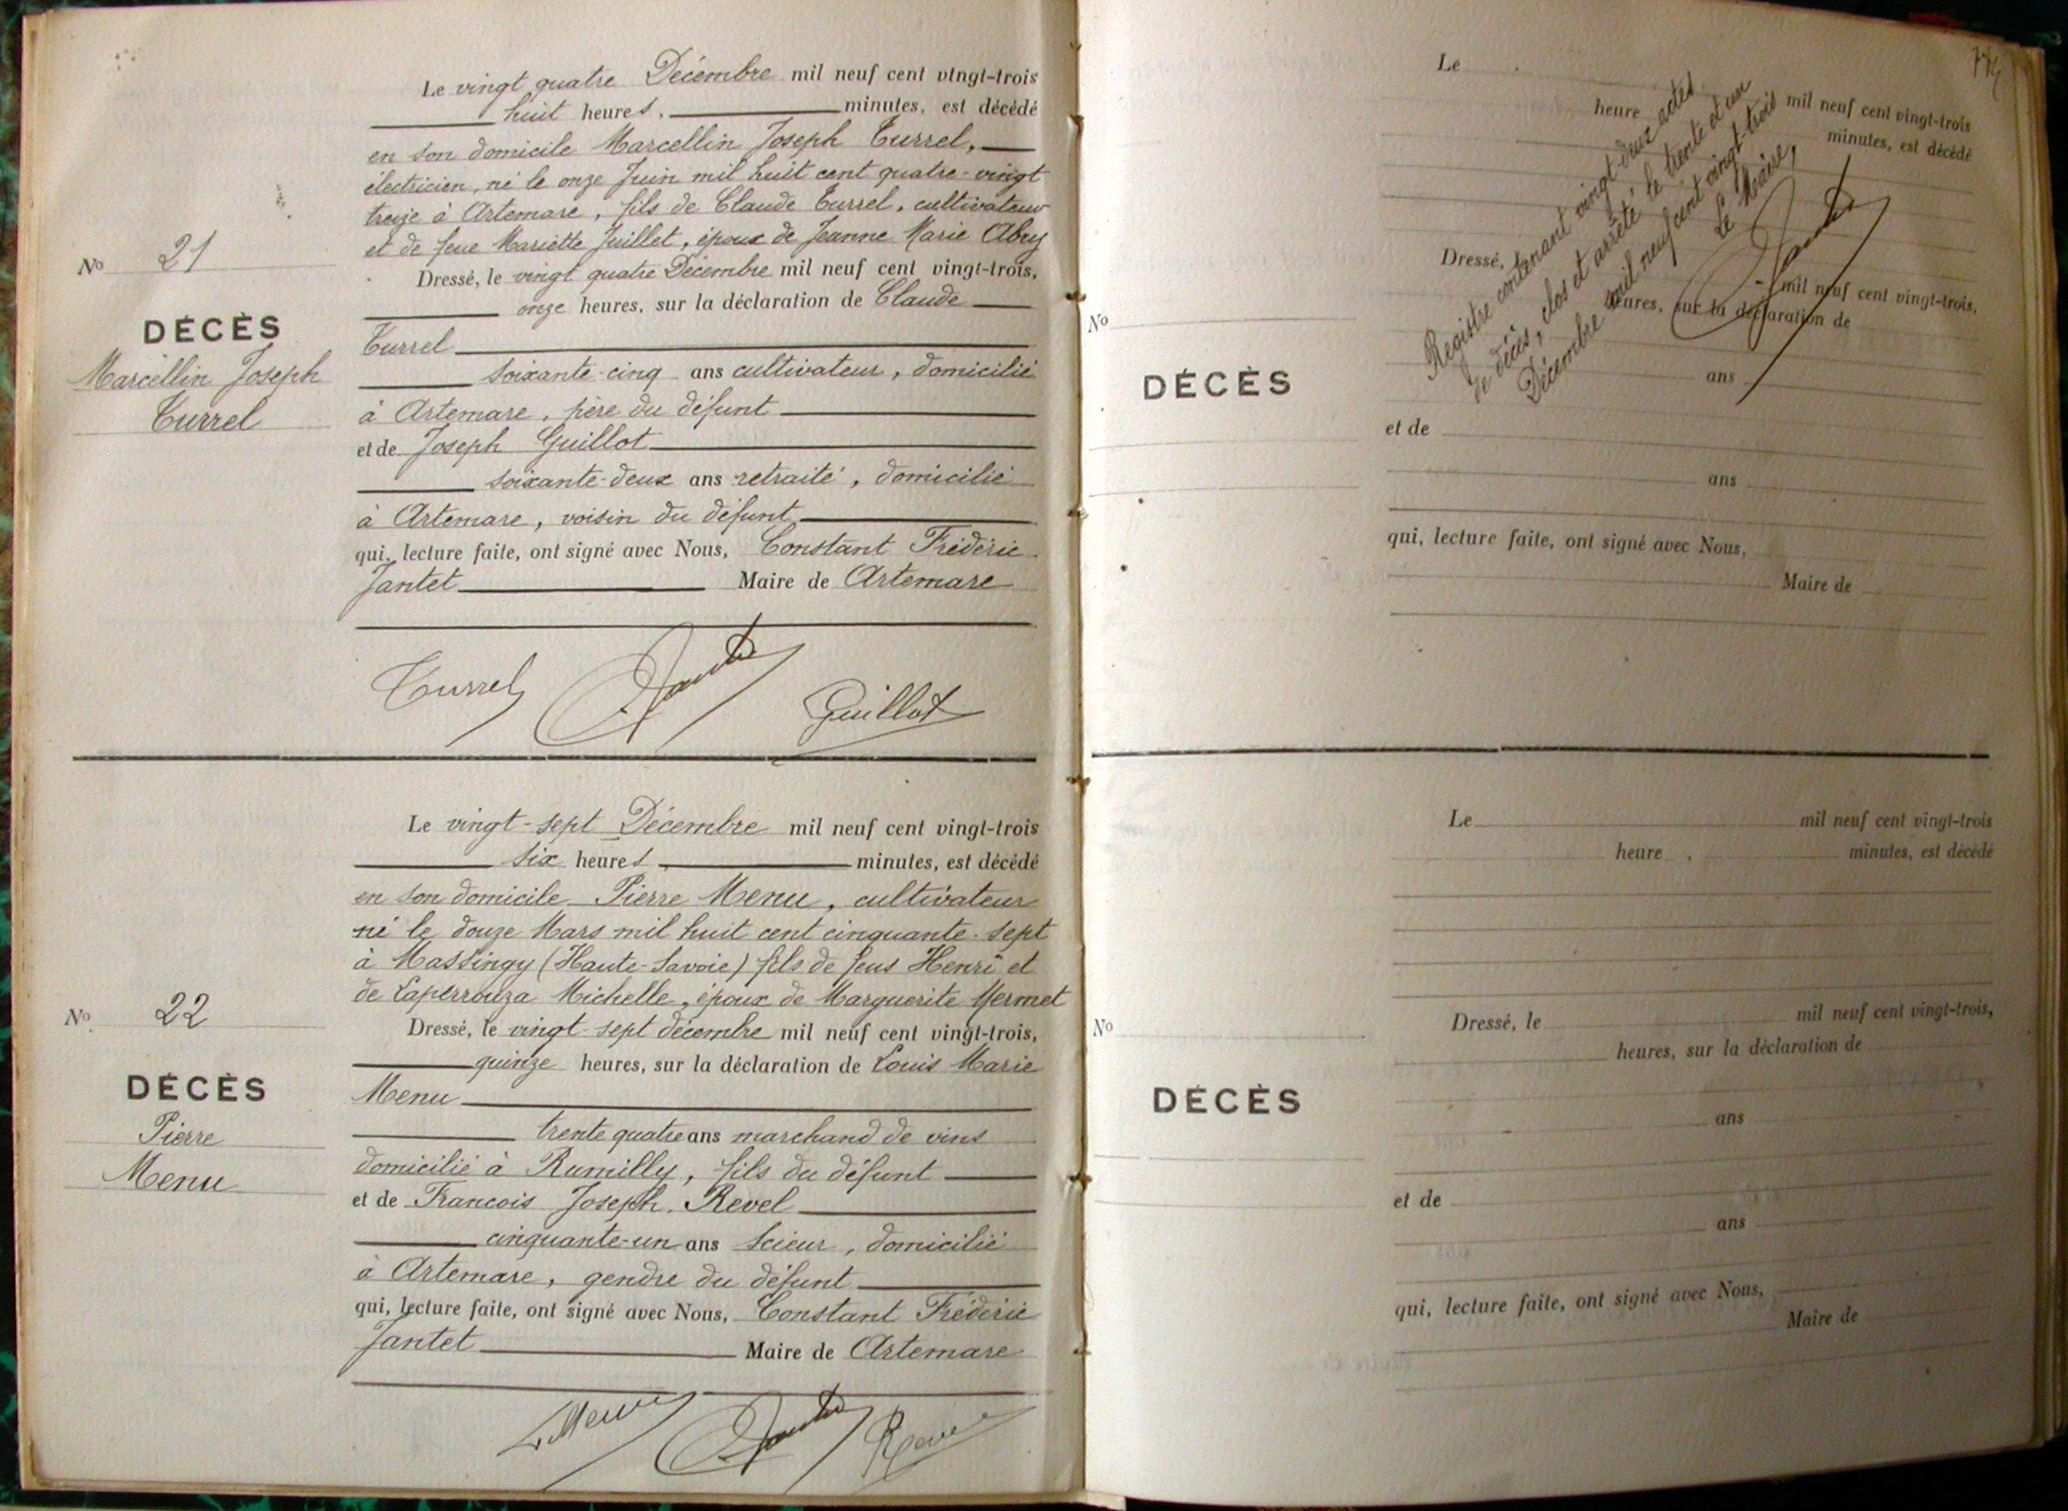 Le vingt quatre Décembre mil neuf cent vingt-trois
huit heures, minutes, est décédé
en son domicile Marcellin Joseph Turrel,
électricien, né le onze Juin mil huit cent quatre-vingt
treize à Artemare, fils de Claude Turrel, cultivateur
et de feue Mariette Juillet, époux de Jeanne Marie Abry
No 21
Dressé, le vingt quatre Décembre mil neuf cent vingt-trois,
onze heures, sur la déclaration de Claude
DÉCÈS
Turrel
Marcellin Joseph
soixante-cinq ans cultivateur, domicilié
Turrel
à Artemare, père du défunt
et de Joseph Guillot
soixante-deux ans retraité, domicilié
à Artemare, voisin du défunt
qui, lecture faite, ont signé avec Nous, Constant Frédéric
Jantet Maire de Artemare
Turrel Jantet Guillot
Le vingt-sept Décembre mil neuf cent vingt-trois
six heures, minutes, est décédé
en son domicile Pierre Menu, cultivateur
né le douze Mars mil huit cent cinquante-sept
à Massingy (Haute-Savoie) fils de feus Henri et
de Laperrouza Michelle, époux de Marguerite Mermet
No 22
Dressé, le vingt-sept décembre mil neuf cent vingt-trois,
quinze heures, sur la déclaration de Louis Marie
DÉCÈS
Menu
Pierre
trente quatre ans marchand de vins
Menu
domicilié à Rumilly, fils du défunt
et de Francois Joseph Revel
cinquante-un ans Scieur, domicilié
à Artemare, gendre du défunt
qui, lecture faite, ont signé avec Nous, Constant Frédéric
Jantet Maire de Artemare
L. Menu Jantet Revel
Le mil neuf cent vingt-trois
heure minutes, est décédé
Registre contenant vingt-deux actes
de décès, clos et arrêté le trente et un
Décembre mil neuf cent vingt-trois
Le Maire,
Jantet
Dressé, le mil neuf cent vingt-trois,
heures, sur la déclaration de
No
DÉCÈS
ans
et de
ans
qui, lecture faite, ont signé avec Nous,
Maire de
Le mil neuf cent vingt-trois
heure , minutes, est décédé
No
Dressé, le mil neuf cent vingt-trois,
heures, sur la déclaration de
DÉCÈS
ans
et de
ans
qui, lecture faite, ont signé avec Nous,
Maire de